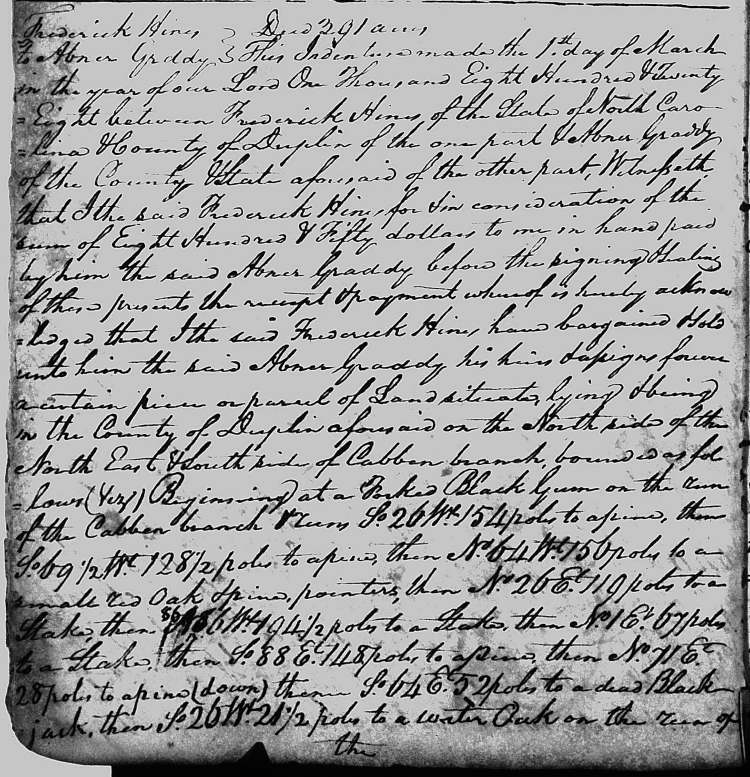 Frederick Hines } Deed 391 acres
To Abner Graddy } This Indenture made the 1st day of March
in the year of our Lord One Thousand Eight Hundred & Twenty
= Eight between Frederick Hines, of the State of North Caro
= lina & County of Duplin of the one part & Abner Graddy
of the County & State aforesaid of the other part, Witnesseth,
that I the said Frederick Hines, for & in consideration of the
sum of Eight Hundred & Fifty dollars to me in hand paid
by him the said Abner Graddy before the signing & Sealing
of these presents the receipt & payment whereof is hereby acknow
= ledged that I the said Frederick Hines, have bargained & Sold
unto him the said Abner Graddy his heirs & assigns forever
a certain piece or parcel of Land situate, lying & being
in the County of Duplin aforesaid on the North side of the
North East & South side, of Cabben branch, bounded as fol
= lows (Vizt) Beginning at a Forked Black Gum on the run
of the Cabben branch & runs So 26 Wt 154 poles to a pine, then
So 69 1/2 Wt 128 1/2 poles to a pine, then No 64 Wt 156 poles to a
small red Oak & pine, pointers, then No 26 Et 119 poles to a
Stake, then 86 Wt 194 1/2 poles to a Stake, then No 1 Et 67 poles
to a Stake, then So 88 Et 148 poles to a pine, then No 71 Et
28 poles to a pine (down) then So 64 E 52 poles to a dead Black
= jack, then So 26 Wt 21 1/2 poles to a water Oak on the run of
the